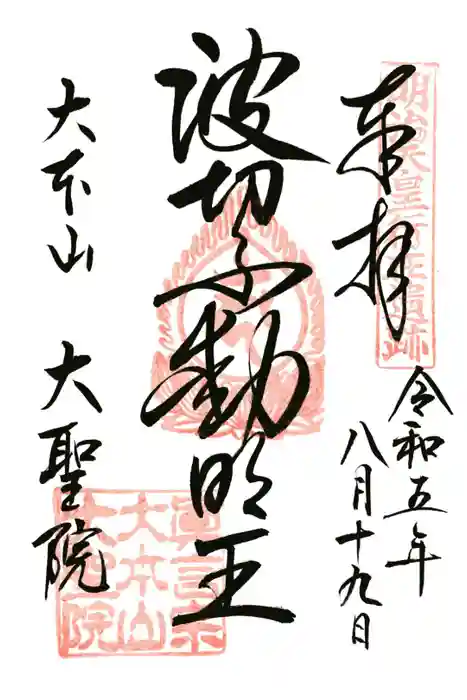 奉拝
明治天皇行在遺跡
令和五年
八月十九日
波切不動明王
大本山 大聖院
真言宗
大本山
大聖院